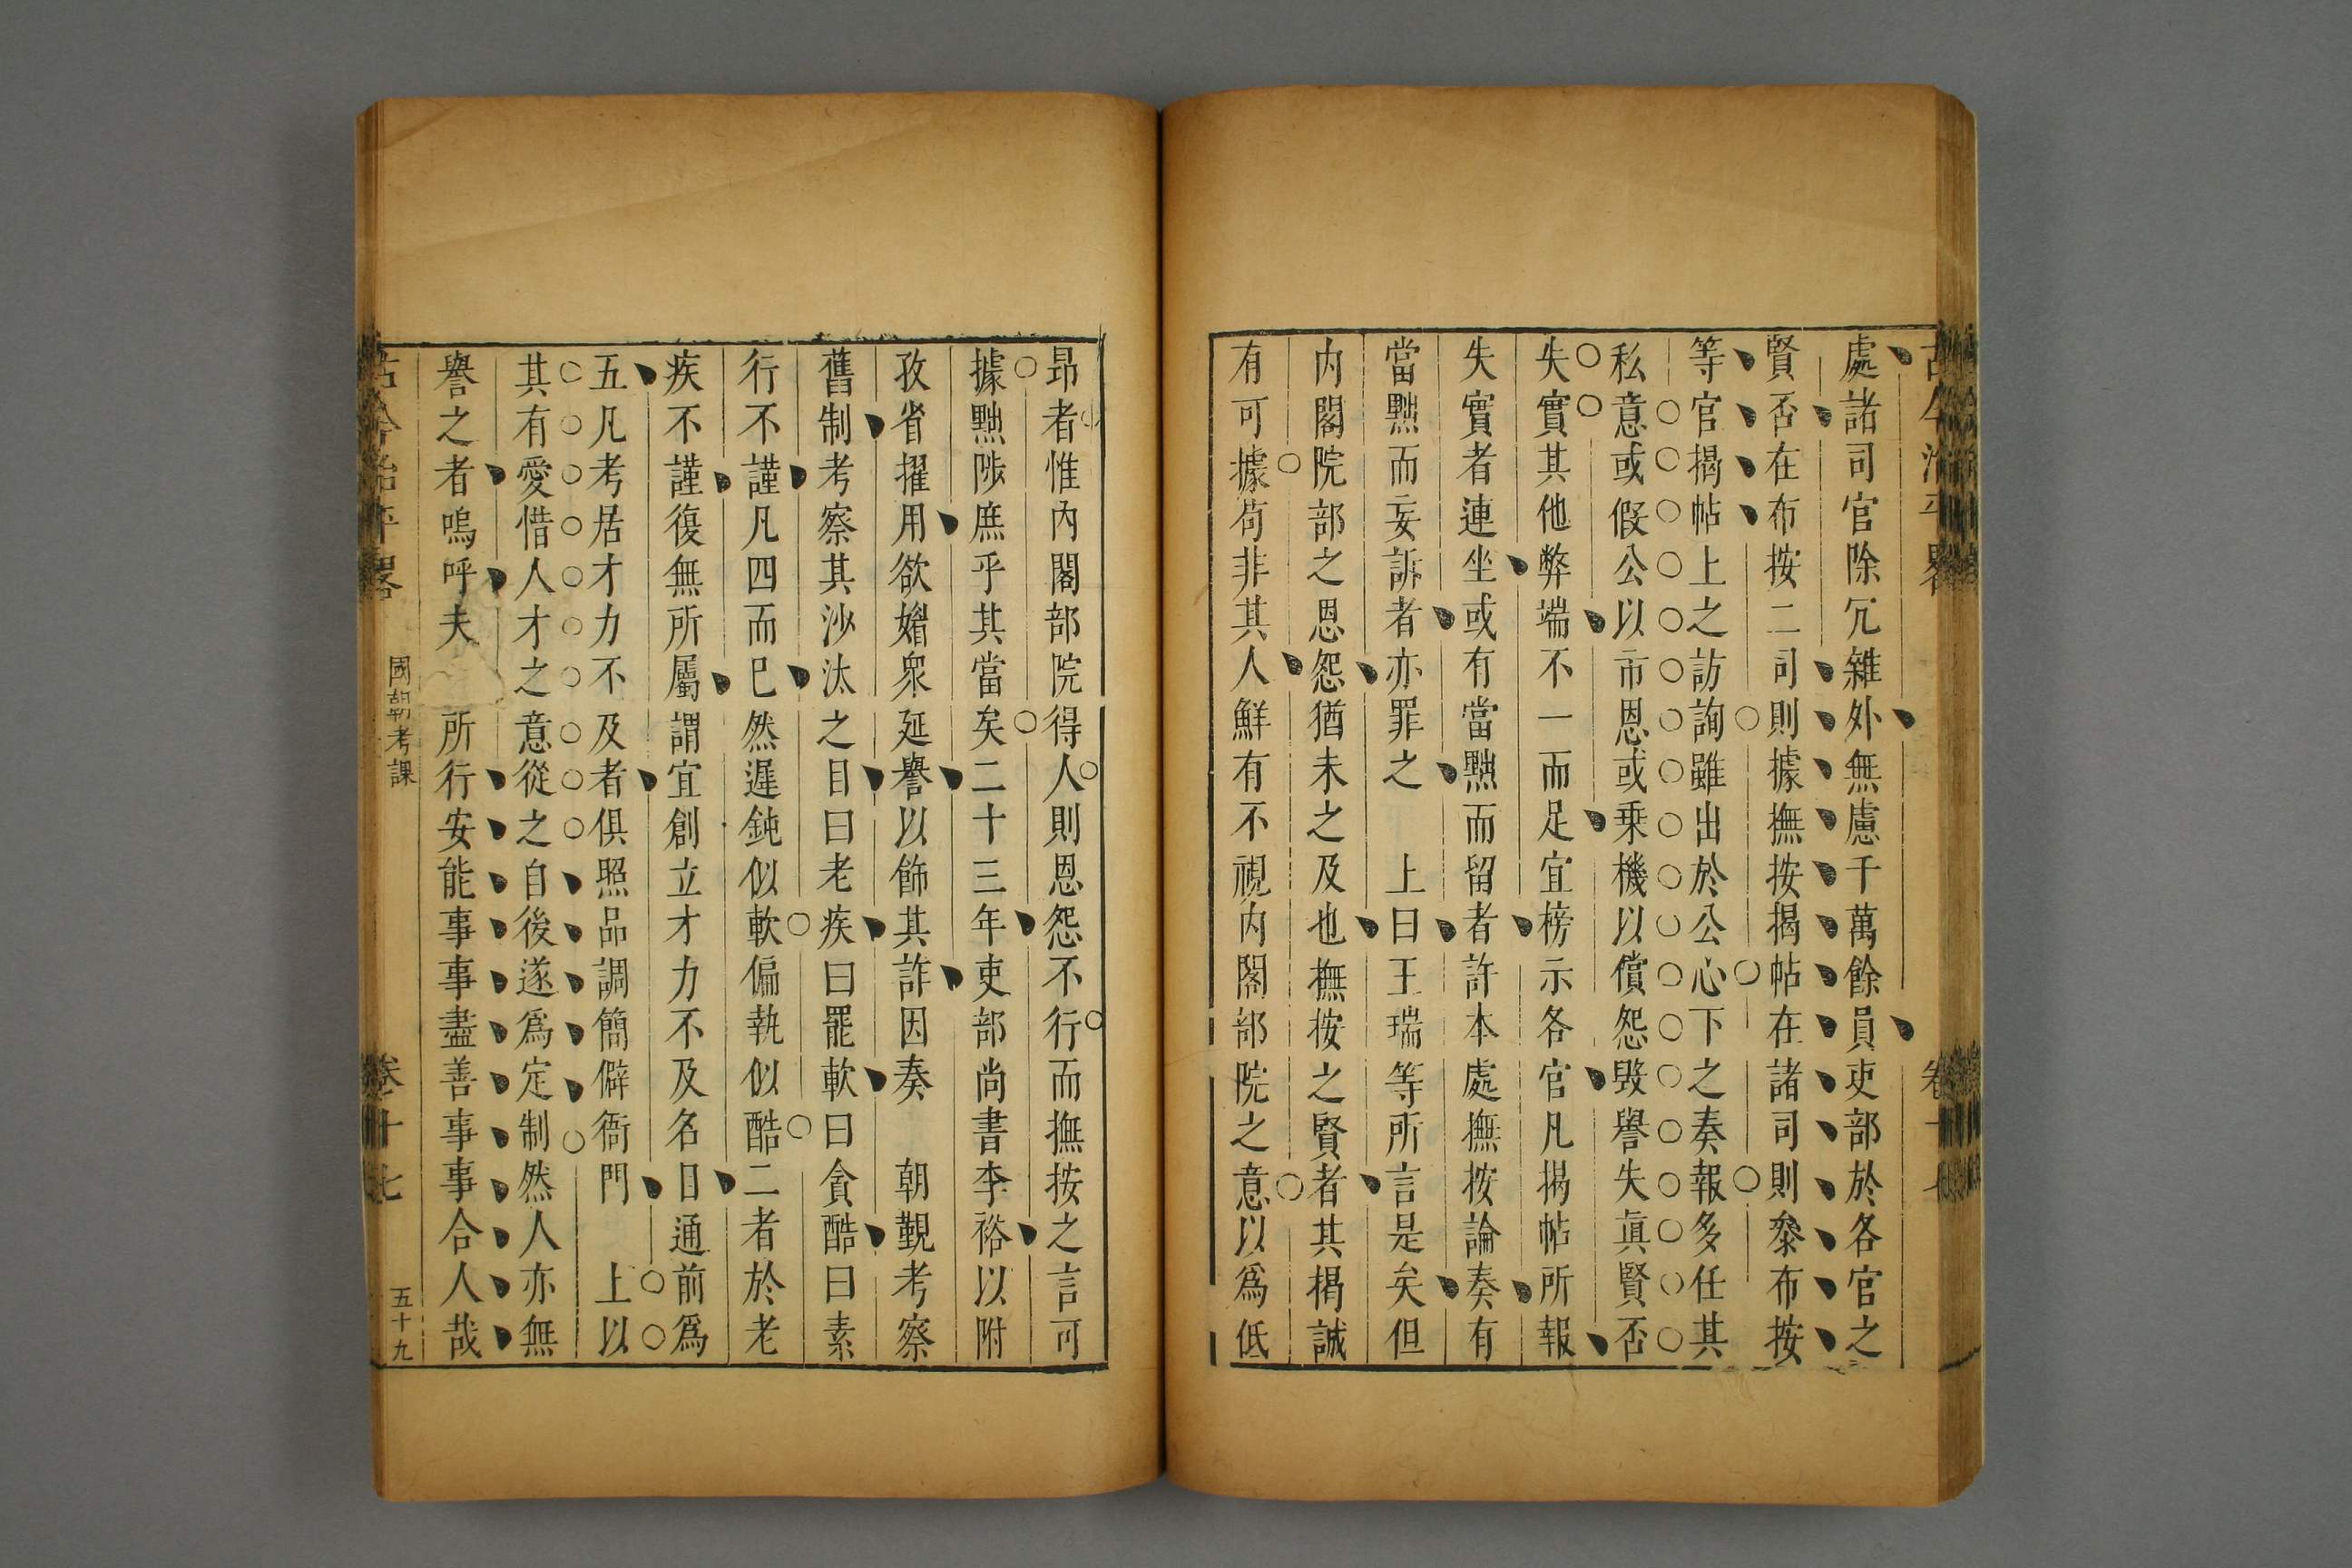 處諸司官除冗雜外無慮千萬餘員吏部於各官之
賢否在布按二司則據撫按揭帖在諸司則叅布按
等官揭帖上之訪詢雖出於公心下之奏報多任其
私意或假公以市恩或乗機以償怨毀譽失眞賢否
失實其他弊端不一而足宜榜示各官凡揭帖所報
失實者連坐或有當黜而留者許本處撫按論奏有
當黜而妄訴者亦罪之 上曰王瑞等所言是矣但
内閣院部之恩怨猶未之及也撫按之賢者其揭誠
有可據苟非其人鮮有不視内閣部院之意以爲低
昻者惟內閣部院得人則恩怨不行而撫按之言可
據黜陟庶乎其當矣二十三年吏部尚書李裕以附
孜省擢用欲媚衆延譽以飾其詐因奏 朝覲考察
舊制考察其沙汰之目曰老疾曰罷軟曰貪酷曰素
行不謹凡四而已然遲鈍似軟偏執似酷二者於老
疾不謹復無所屬謂宜創立才力不及名目通前爲
五凡考居才力不及者俱照品調簡僻衙門 上以
其有愛惜人才之意從之自後遂爲定制然人亦無
譽之者嗚呼夫 所行安能事事盡善事事合人哉
古今治平畧
國朝考課
卷十七
五十九